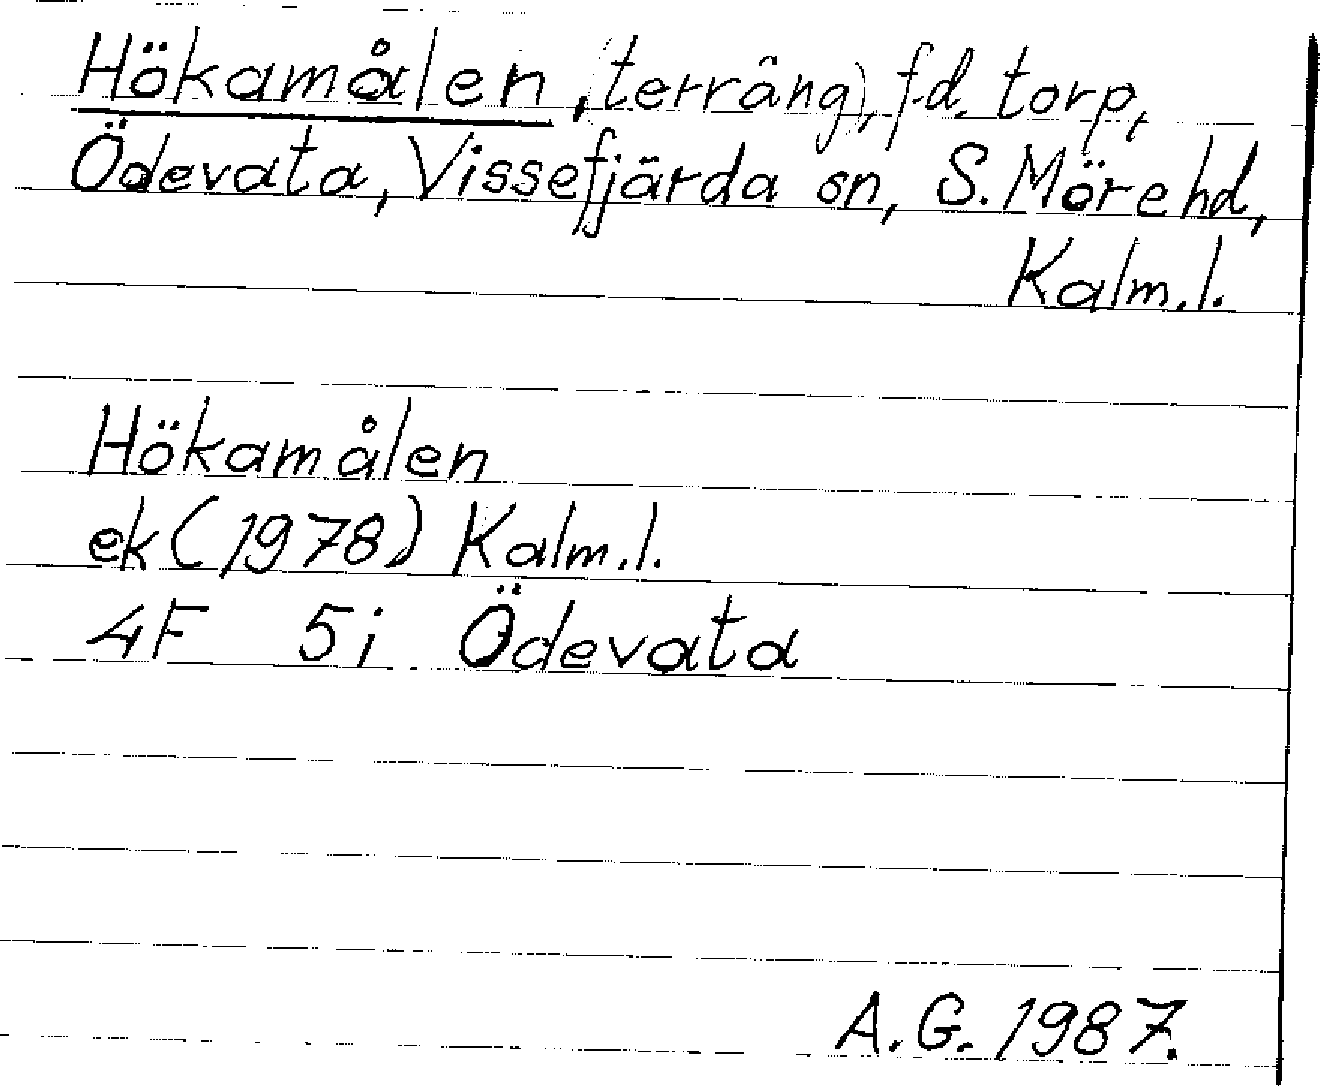 Hökamålen, (terräng), f.d. torp,
Ödevata, Vissefjärda sn, S. Möre hd,
Kalm.l.
Hökamålen
ek (1978) Kalm.l.
4F 5i Ödevata
A.G. 1987.